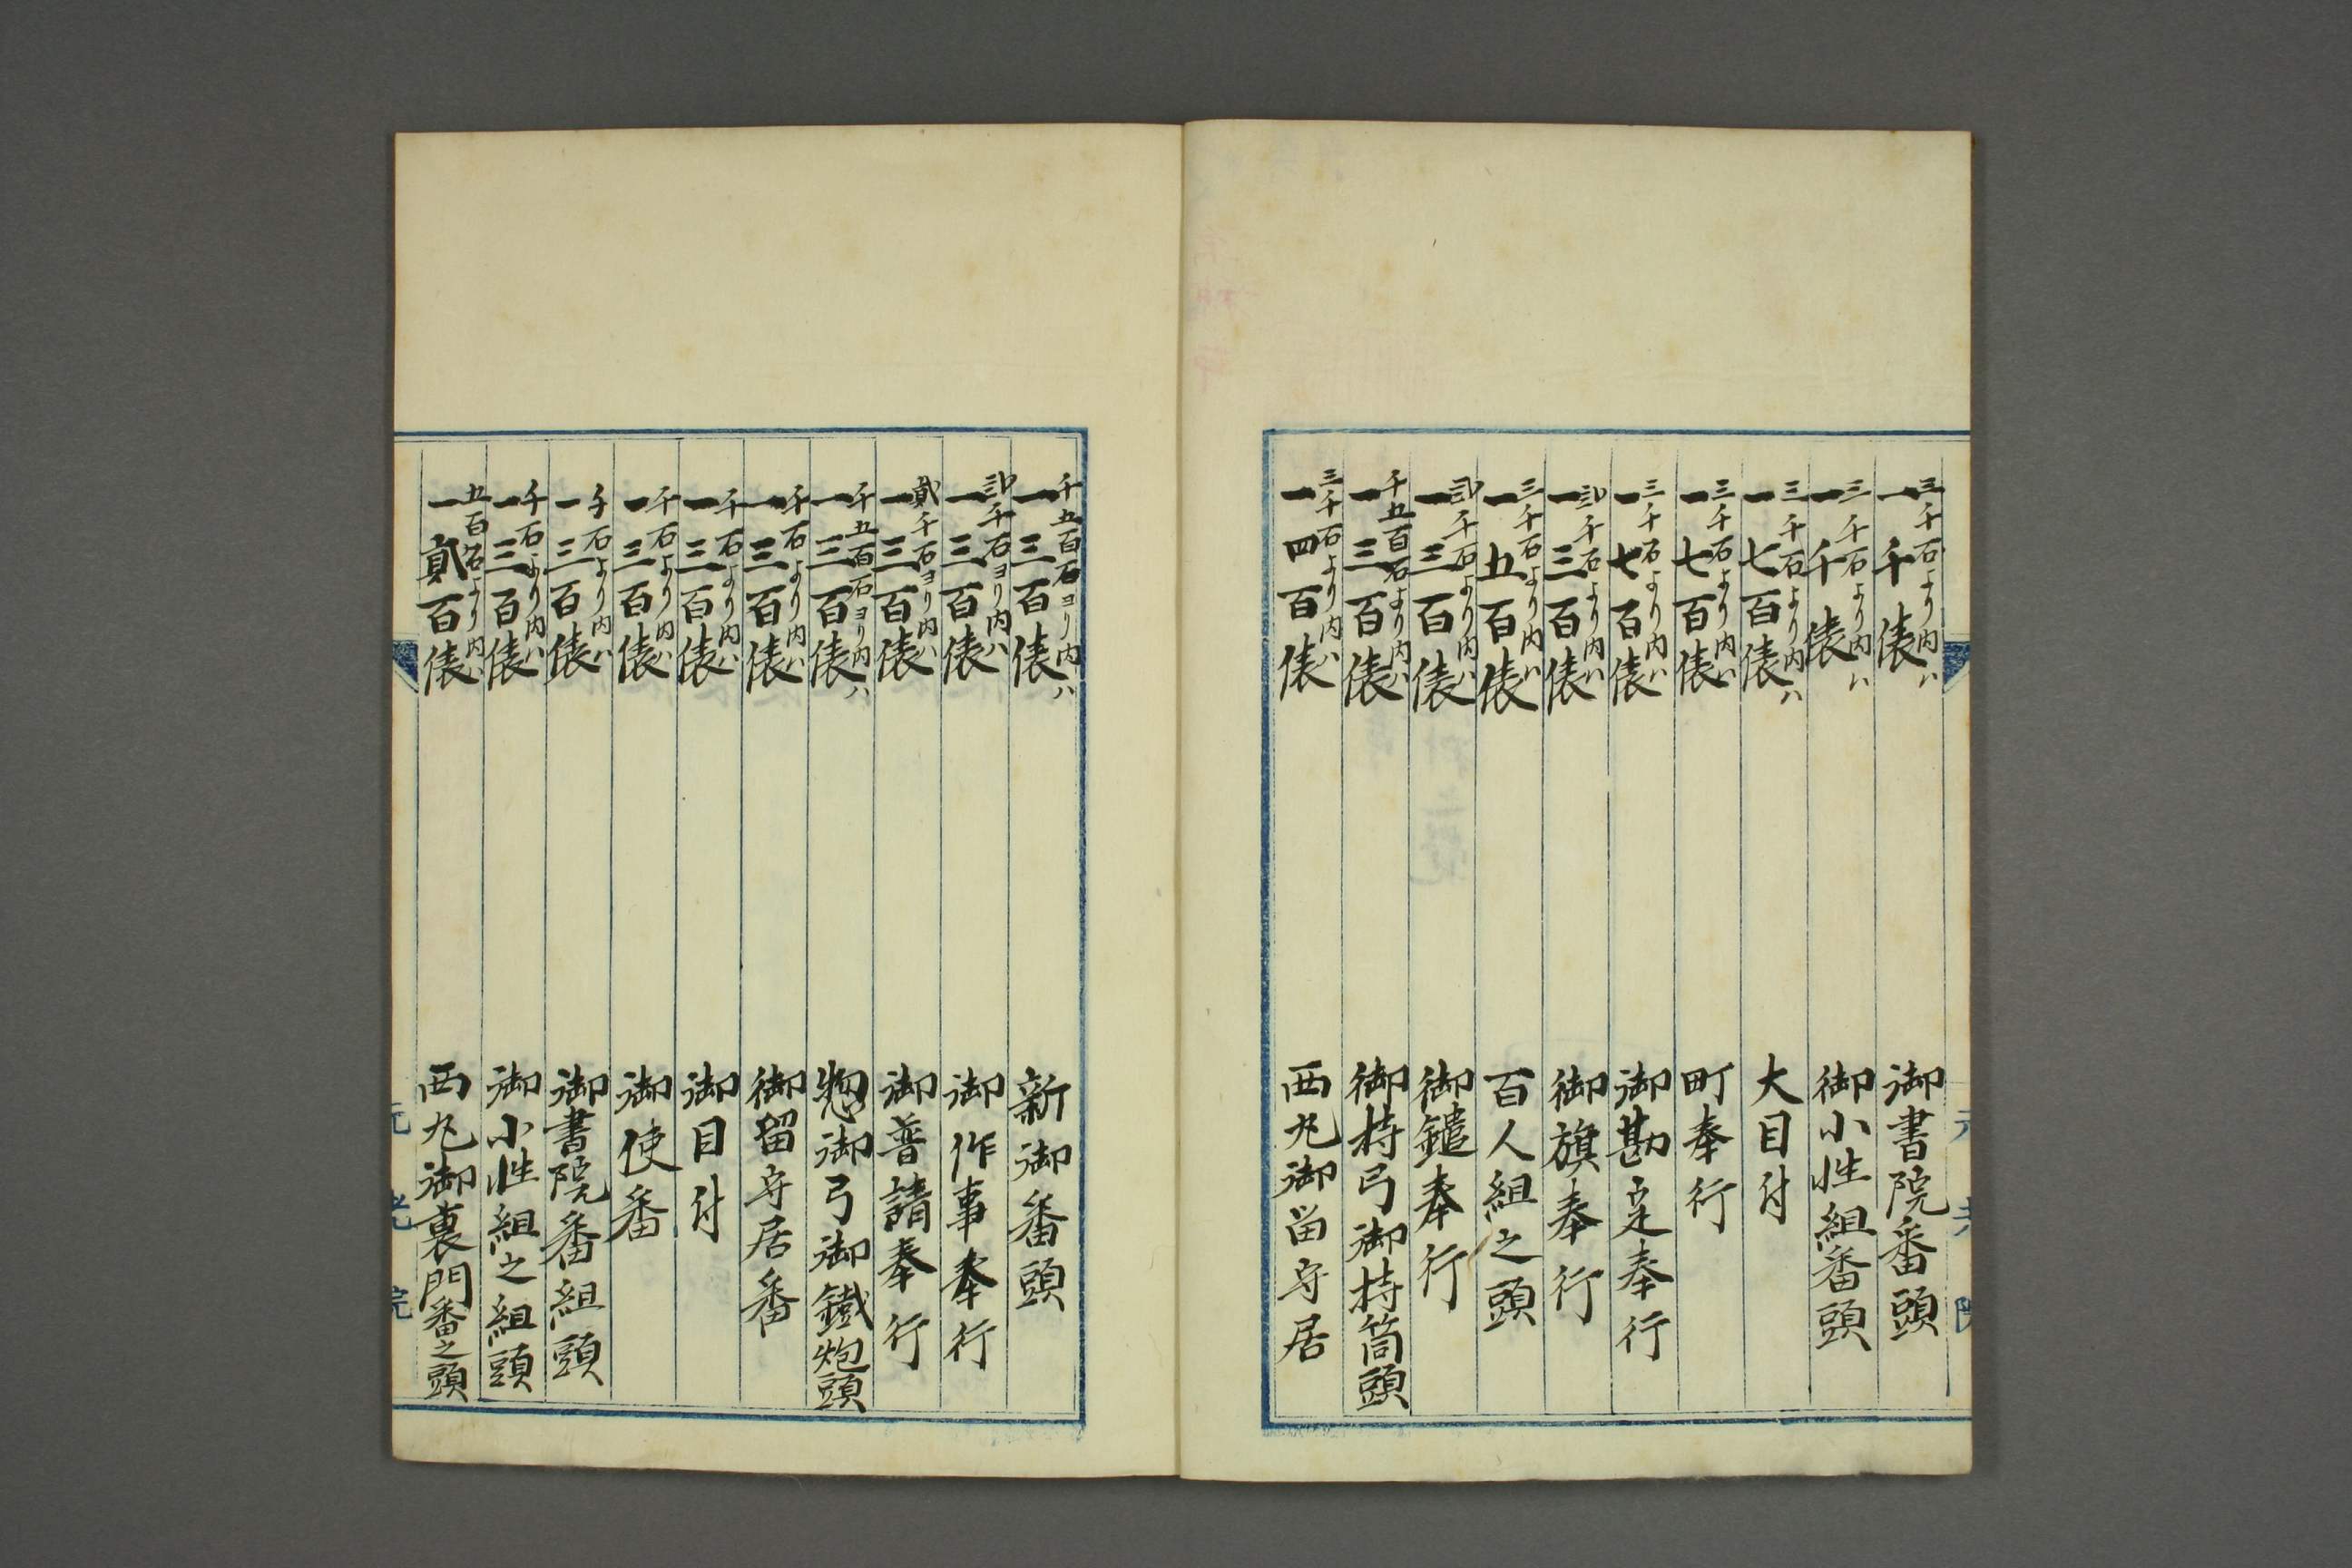 三千石より内ハ
一千俵 御書院番頭
三千石より内ハ
一千俵 御小性組番頭
三千石より内ハ
一七百俵 大目付
三千石より内ハ
一七百俵 町奉行
三千石より内ハ
一七百俵 御勘定奉行
弐千石より内ハ
一三百俵 御旗奉行
三千石より内ハ
一五百俵 百人組之頭
弐千石より内ハ
一三百俵 御鑓奉行
千五百石より内ハ
一三百俵 御持弓御持筒頭
三千石より内ハ
一四百俵 西丸御留守居
千五百石ヨり内ハ
一三百俵 新御番頭
弐千石ヨり内ハ
一三百俵 御作事奉行
貳千石ヨり内ハ
一三百俵 御普請奉行
千五百石ヨり内ハ
一三百俵 惣御弓御鐵炮頭
千石より内ハ
一三百俵 御留守居番
千石より内ハ
一三百俵 御目付
千石より内ハ
一三百俵 御使番
千石より内ハ
一三百俵 御書院番組頭
千石より内ハ
一三百俵 御小性組之組頭
五百石より内ハ
一貳百俵 西丸御裏門番之頭
元老院